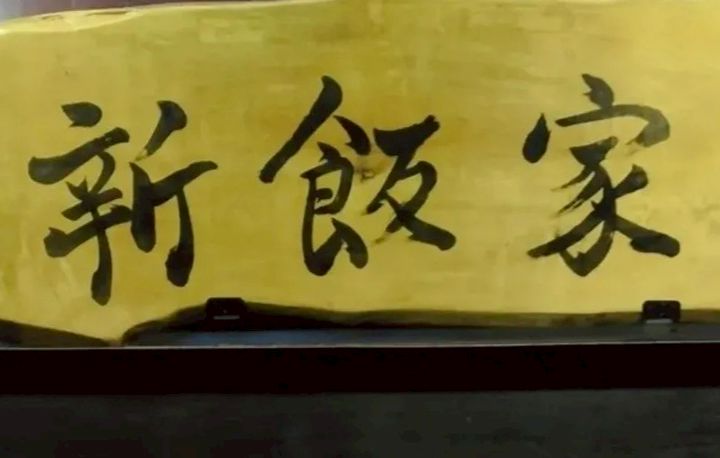 新飯家